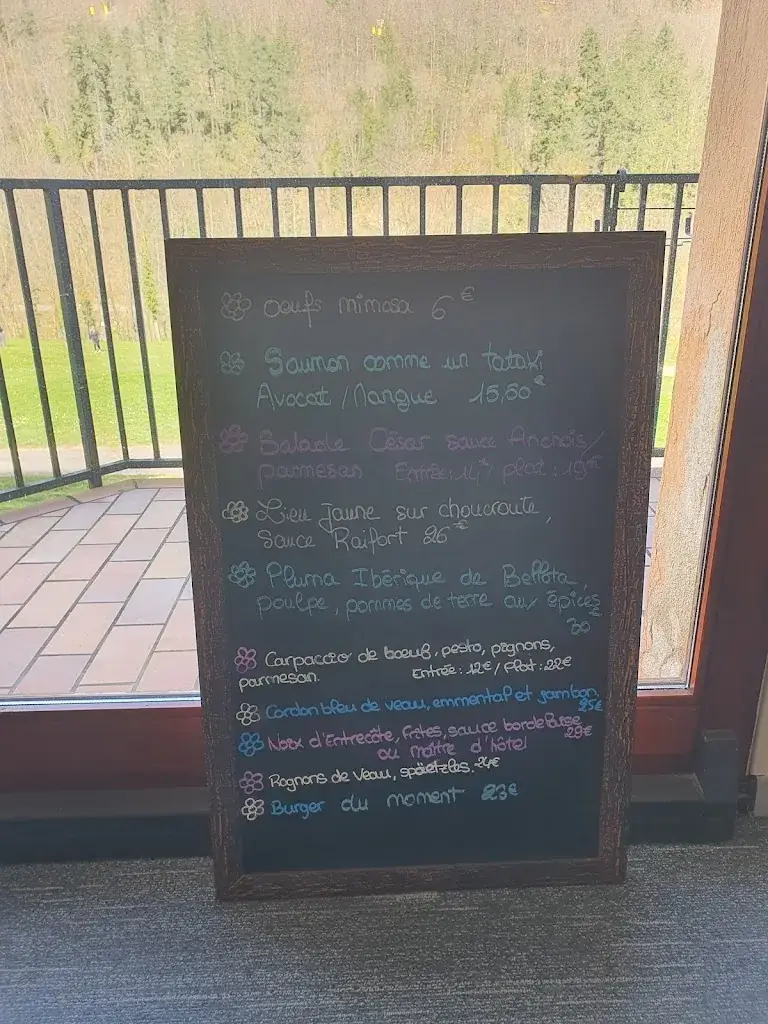 Oeufs mimosa 6€
Saumon comme un tataki
Avocat / Mangue 15,50€
Salade César sauce Anchois/
parmesan Entrée: 14€/ plat: 19€
Lieu jaune sur choucroute,
Sauce Raifort 26€
Pluma Ibérique de Bellota,
poulpe, pommes de terre aux épices
30€
Carpaccio de boeuf, pesto, pignons,
parmesan. Entrée: 12€ / Plat: 22€
Cordon bleu de veau, emmental et jambon.
25€
Noix d'Entrecôte, frites, sauce bordelaise
ou maître d'hôtel 29€
Rognons de veau, spàetzles. 24€
Burger du moment 23€